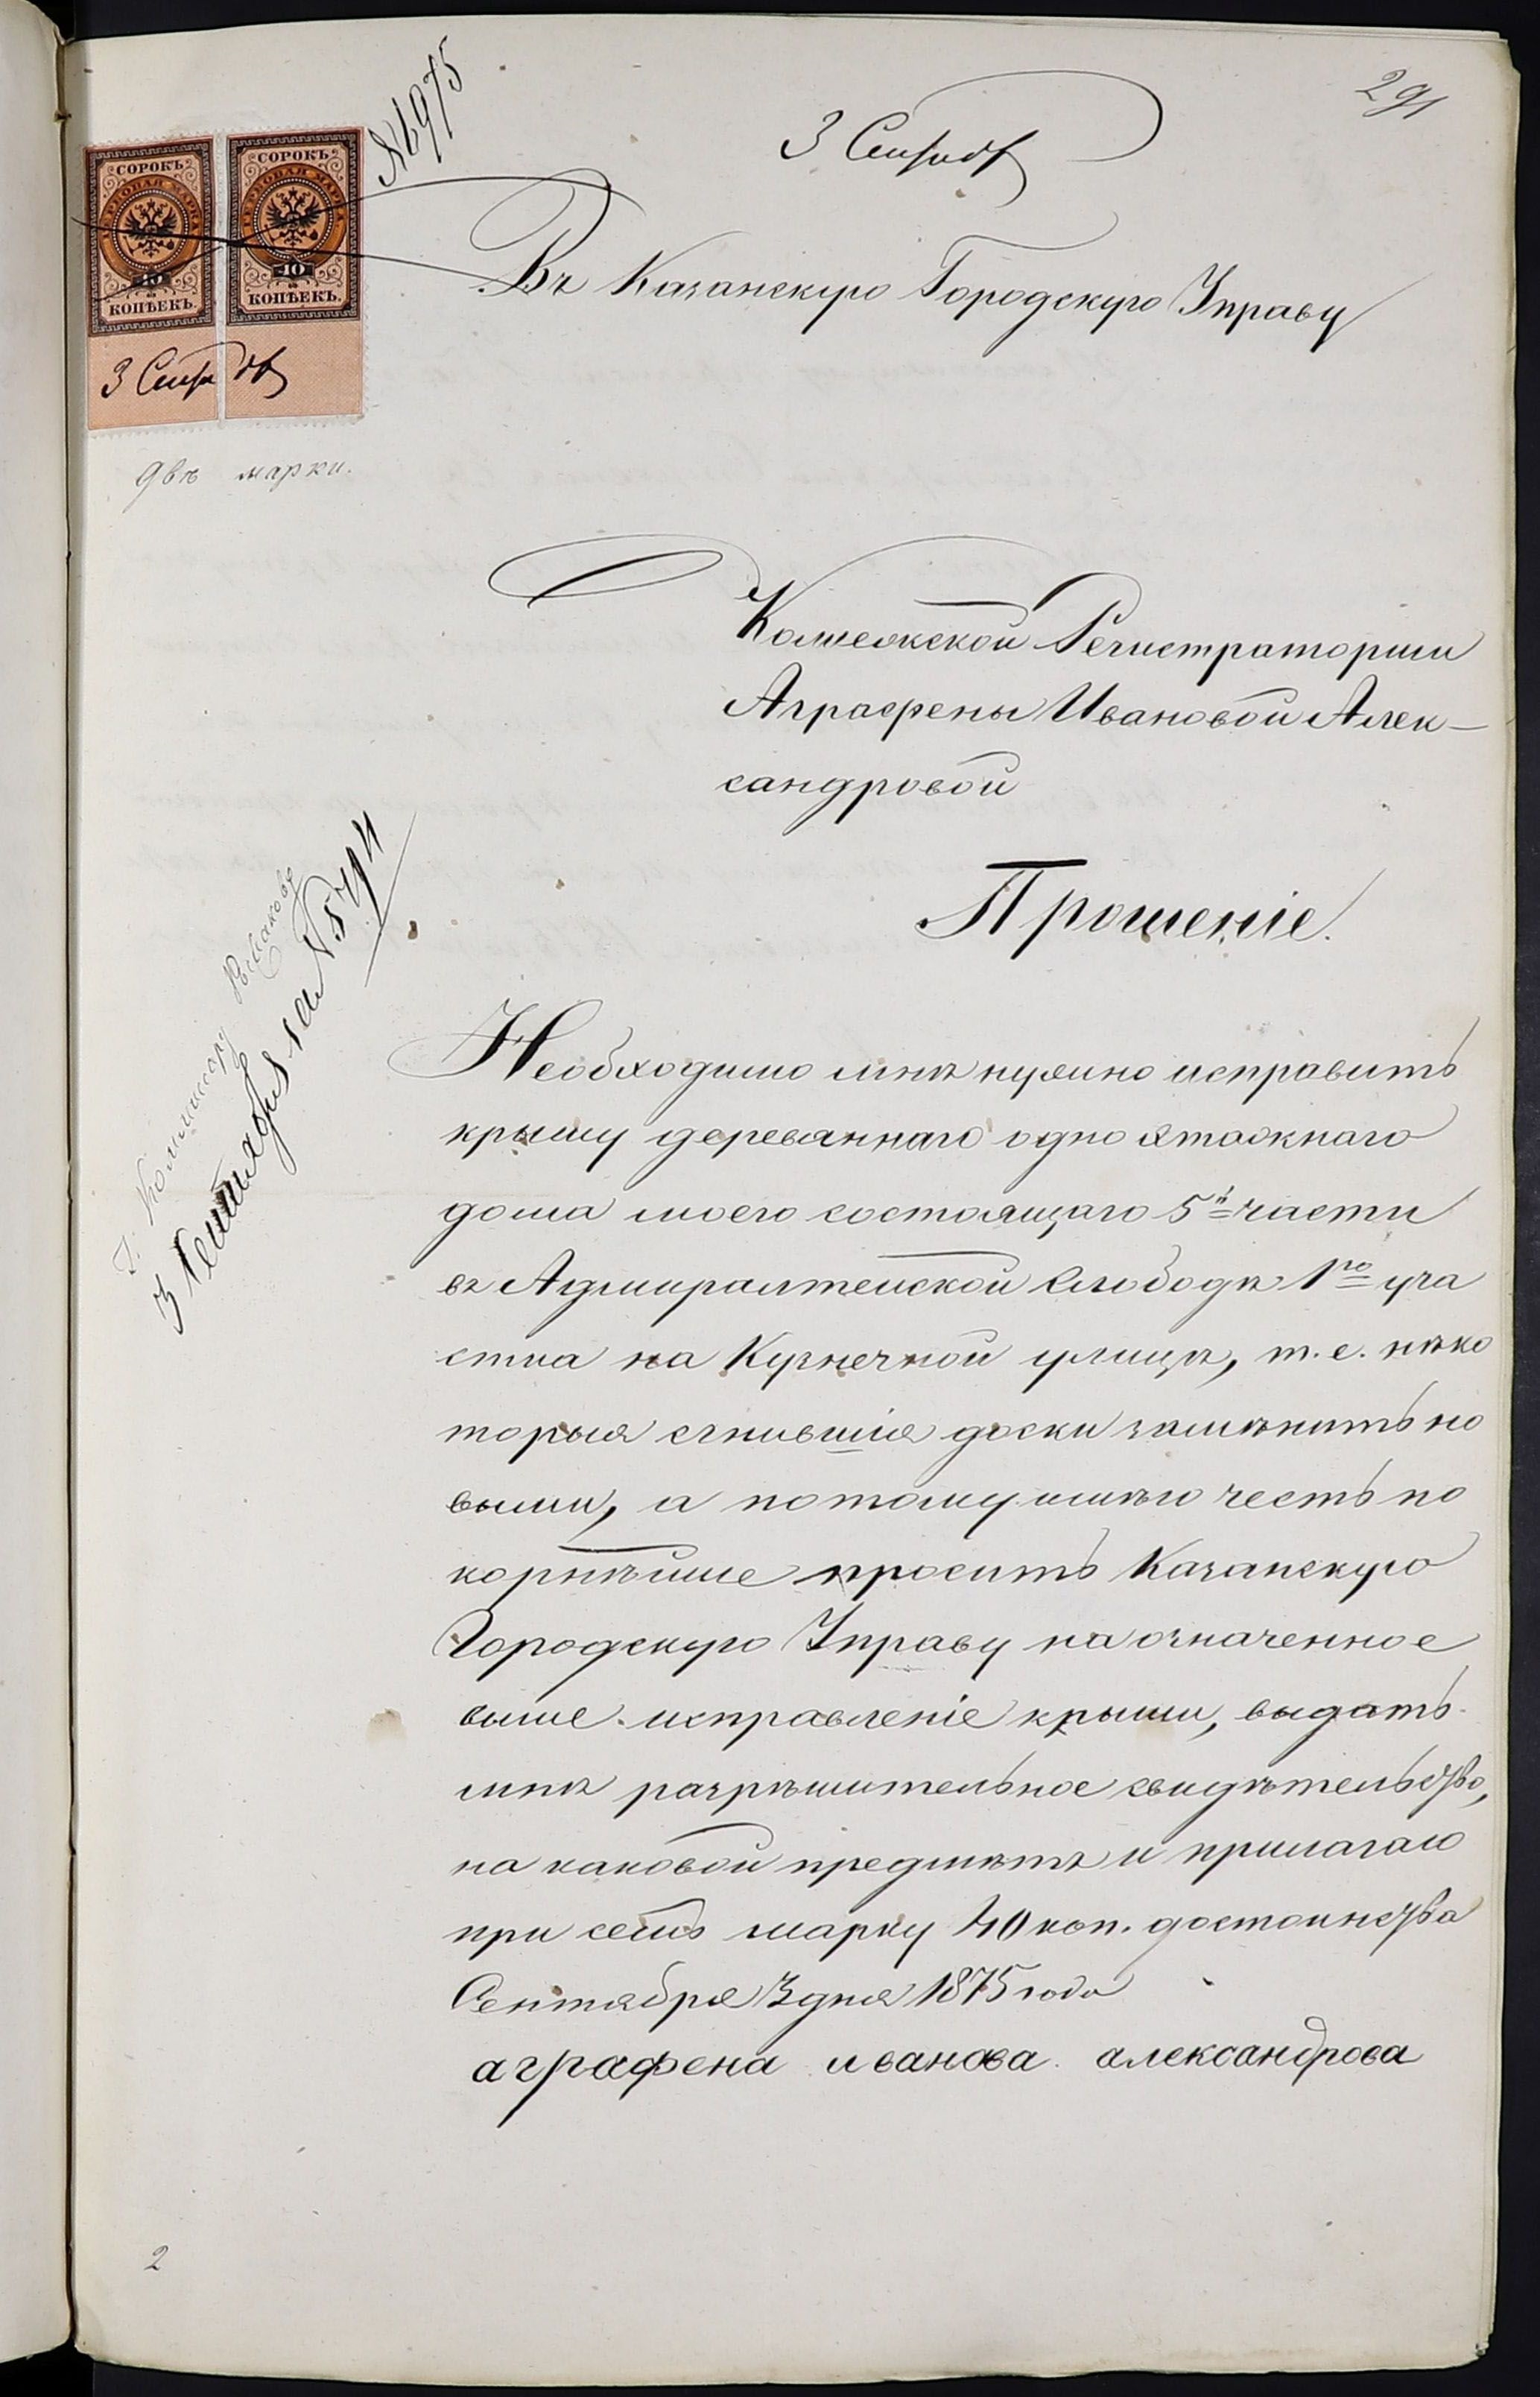 291
№ 6975
3 Сентяб
СОРОКЪ
ГЕРБОВАЯ МАРКА
40
КОПѢЕКЪ.
СОРОКЪ
ГЕРБОВАЯ МАРКА
40
КОПѢЕКЪ.
3 Сентяб
двѣ марки.
Въ Казанскую Городскую Управу
Коллежской Регистраторши
Аграфены Ивановой Алек-
сандровой
Прошеніе.
г. Коммисару
3 Сентября за №
Необходимо мнѣ нужно исправить
крышу деревяннаго одно этажнаго
дома моего состоящаго 5й части
въ Адмиралтейской Слободѣ 1го уча
стка на Кузнечной улицѣ, т.е. нѣко
торыя сгнившія доски замѣнить но
выми, а потому имѣю честь по
корнѣйше просить Казанскую
Городскую Управу на означенное
выше исправленіе крыши, выдать
мнѣ разрѣшительное свидѣтельство,
на каковой предмѣтъ и прилагаю
при семъ марку 40 коп. достоинства
Сентября 3 дня 1875 года
аграфена иванова александрова
2